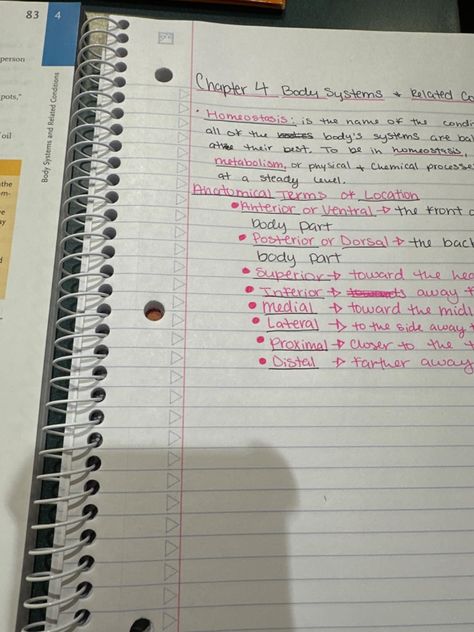 83 4
person
pots,"
oil
the
m-
ve
ay
d
Body Systems and Related Conditions
Chapter 4 Body Systems + Related Co
• Homeostasis: is the name of the condi
all of the body's systems are bal
their best. To be in homeostasis,
metabolism, or physical + chemical processe
at a steady level.
Anatomical Terms of Location
• Anterior or Ventral → the front
body part
• Posterior or Dorsal → the bac
body part
• Superior → toward the hea
• Inferior → away f
• Medial → toward the midl
• Lateral → to the side away f
• Proximal → closer to the t
• Distal → farther away